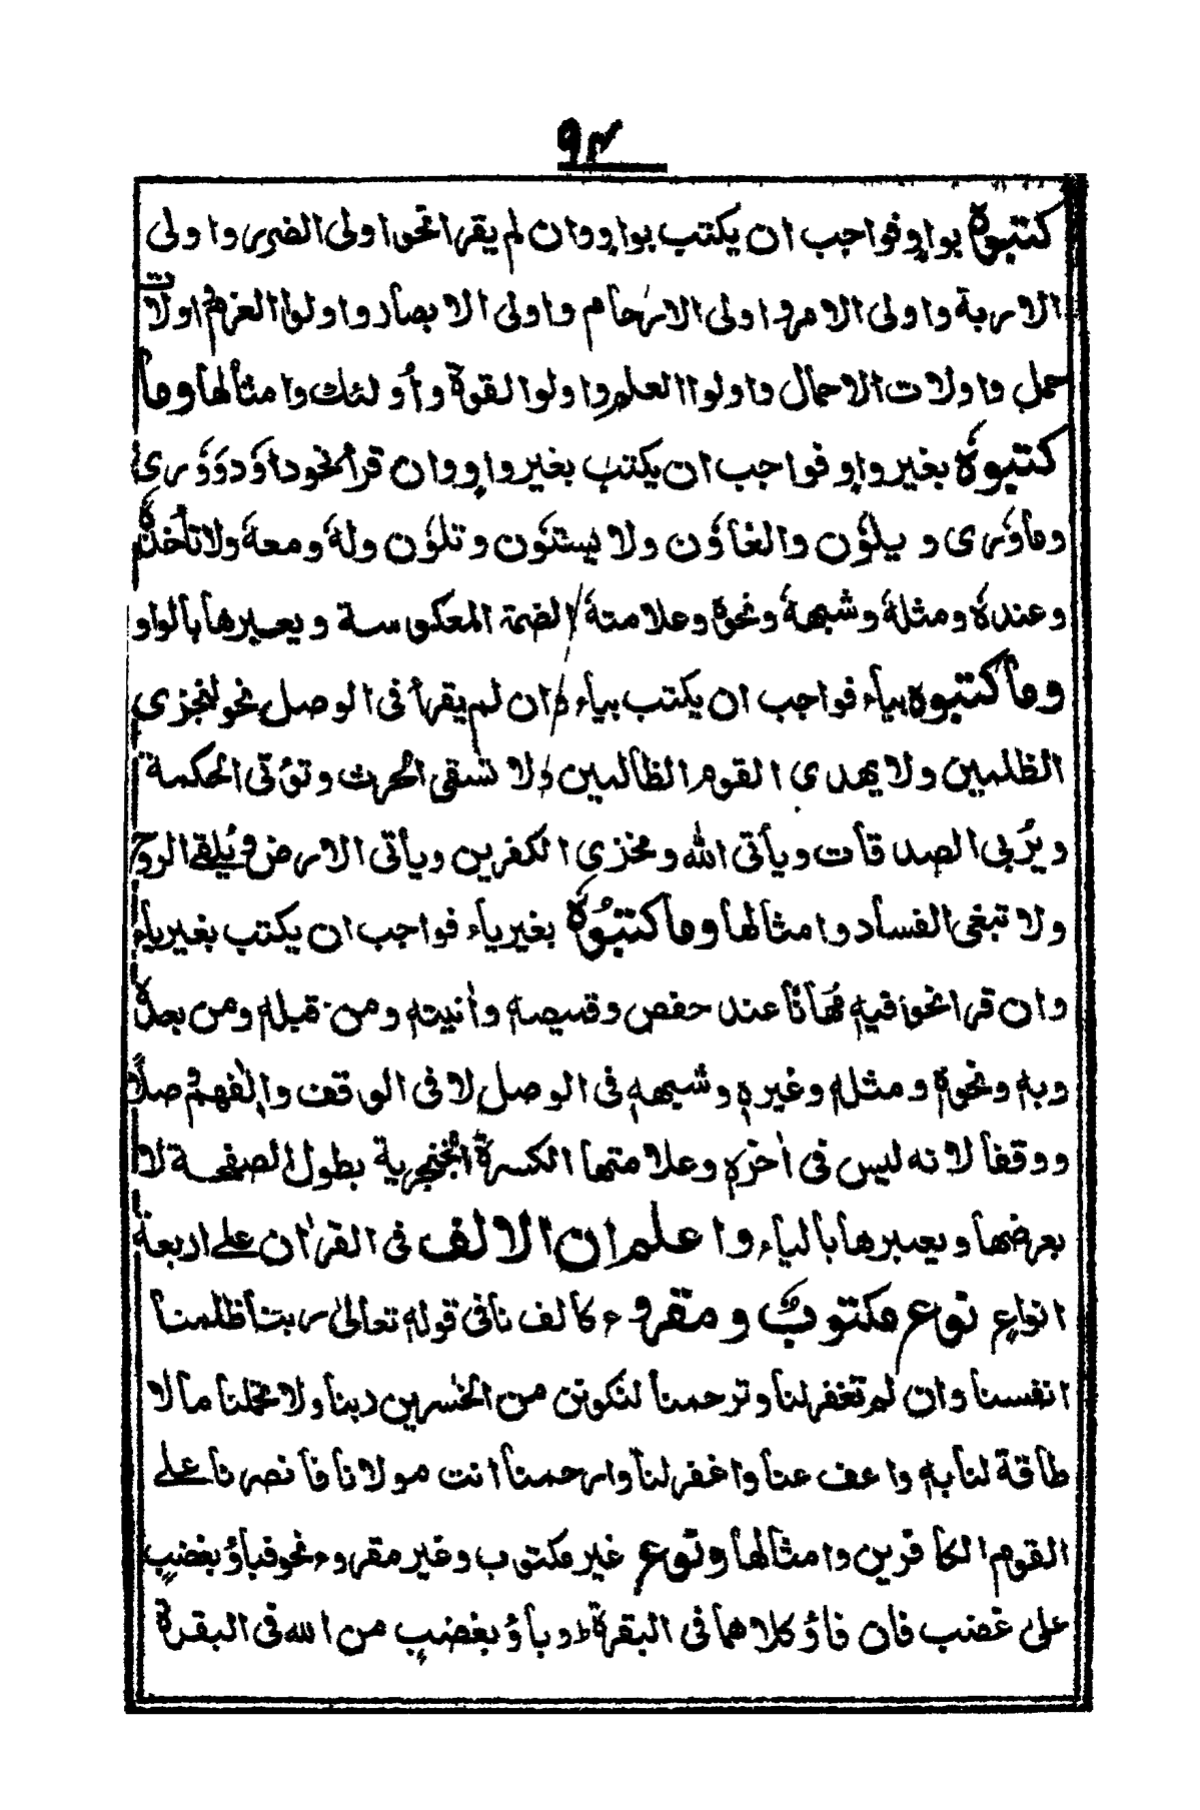 ٩٣
كتبوه بواو فواجب ان يكتب بواو وان لم يقرا نحو اولى الضرر واولى
الاربة واولى الامر واولى الارحام واولى الابصار واولوا العزم اولات
حمل واولات الاحمال واولوا العلم واولوا القوة وأولئك وامثالها وما
كتبوه بغير واو فواجب ان يكتب بغير واو وان قرأ نحو داوٗد ووٗرى
وماوٗرى ويلوٗن والغاوٗن ولا يستوٗن وتلوٗن ولهٗ ومعهٗ ولا تأخذهٗ
وعندهٗ ومثلهٗ وشبههٗ ونحوهٗ وعلامتهٗ الضمة المعكوسة ويعبرها بالواو
وما كتبوه بياء فواجب ان يكتب بياء وان لم يقرأ فى الوصل نحو لنجزى
الظلمين ولا يهدى القوم الظالمين ولا تسقى الحرث وتؤتى الحكمة
ويربى الصدقات ويأتى الله ومخزى الكفرين ويأتى الارض ويلقى الروح
ولا تبغى الفساد وامثالها وما كتبوه بغير ياء فواجب ان يكتب بغير ياء
وان قرا نحو فيهٖ مهانا عند حفص وقميصهٖ وأنيتهٖ ومن قبلهٖ ومن بعدهٖ
وبهٖ ونحوهٖ ومثلهٖ وغيرهٖ وشبههٖ فى الوصل لا فى الوقف والٖفهم وصلا
ووقفا لانه ليس فى اخرهٖ وعلامتها الكسرة الخنجرية بطول الصفحة لا
بعرضها ويعبرها بالياء واعلم ان الالف فى القران على اربعة
انواع نوع مكتوب ومقروء كالف نا فى قولهٖ تعالى ربنا ظلمنا
انفسنا وان لم تغفر لنا وترحمنا لنكونن من الخسرين ربنا ولا تحملنا ما لا
طاقة لنا بهٖ واعف عنا واغفر لنا وارحمنا انت مولانا فانصرنا على
القوم الكافرين وامثالها ونوع غير مكتوب وغير مقروء نحو فباؤ بغضب
على غضب فان فاؤ كلاهما فى البقرة وباؤ بغضب من الله فى البقرة